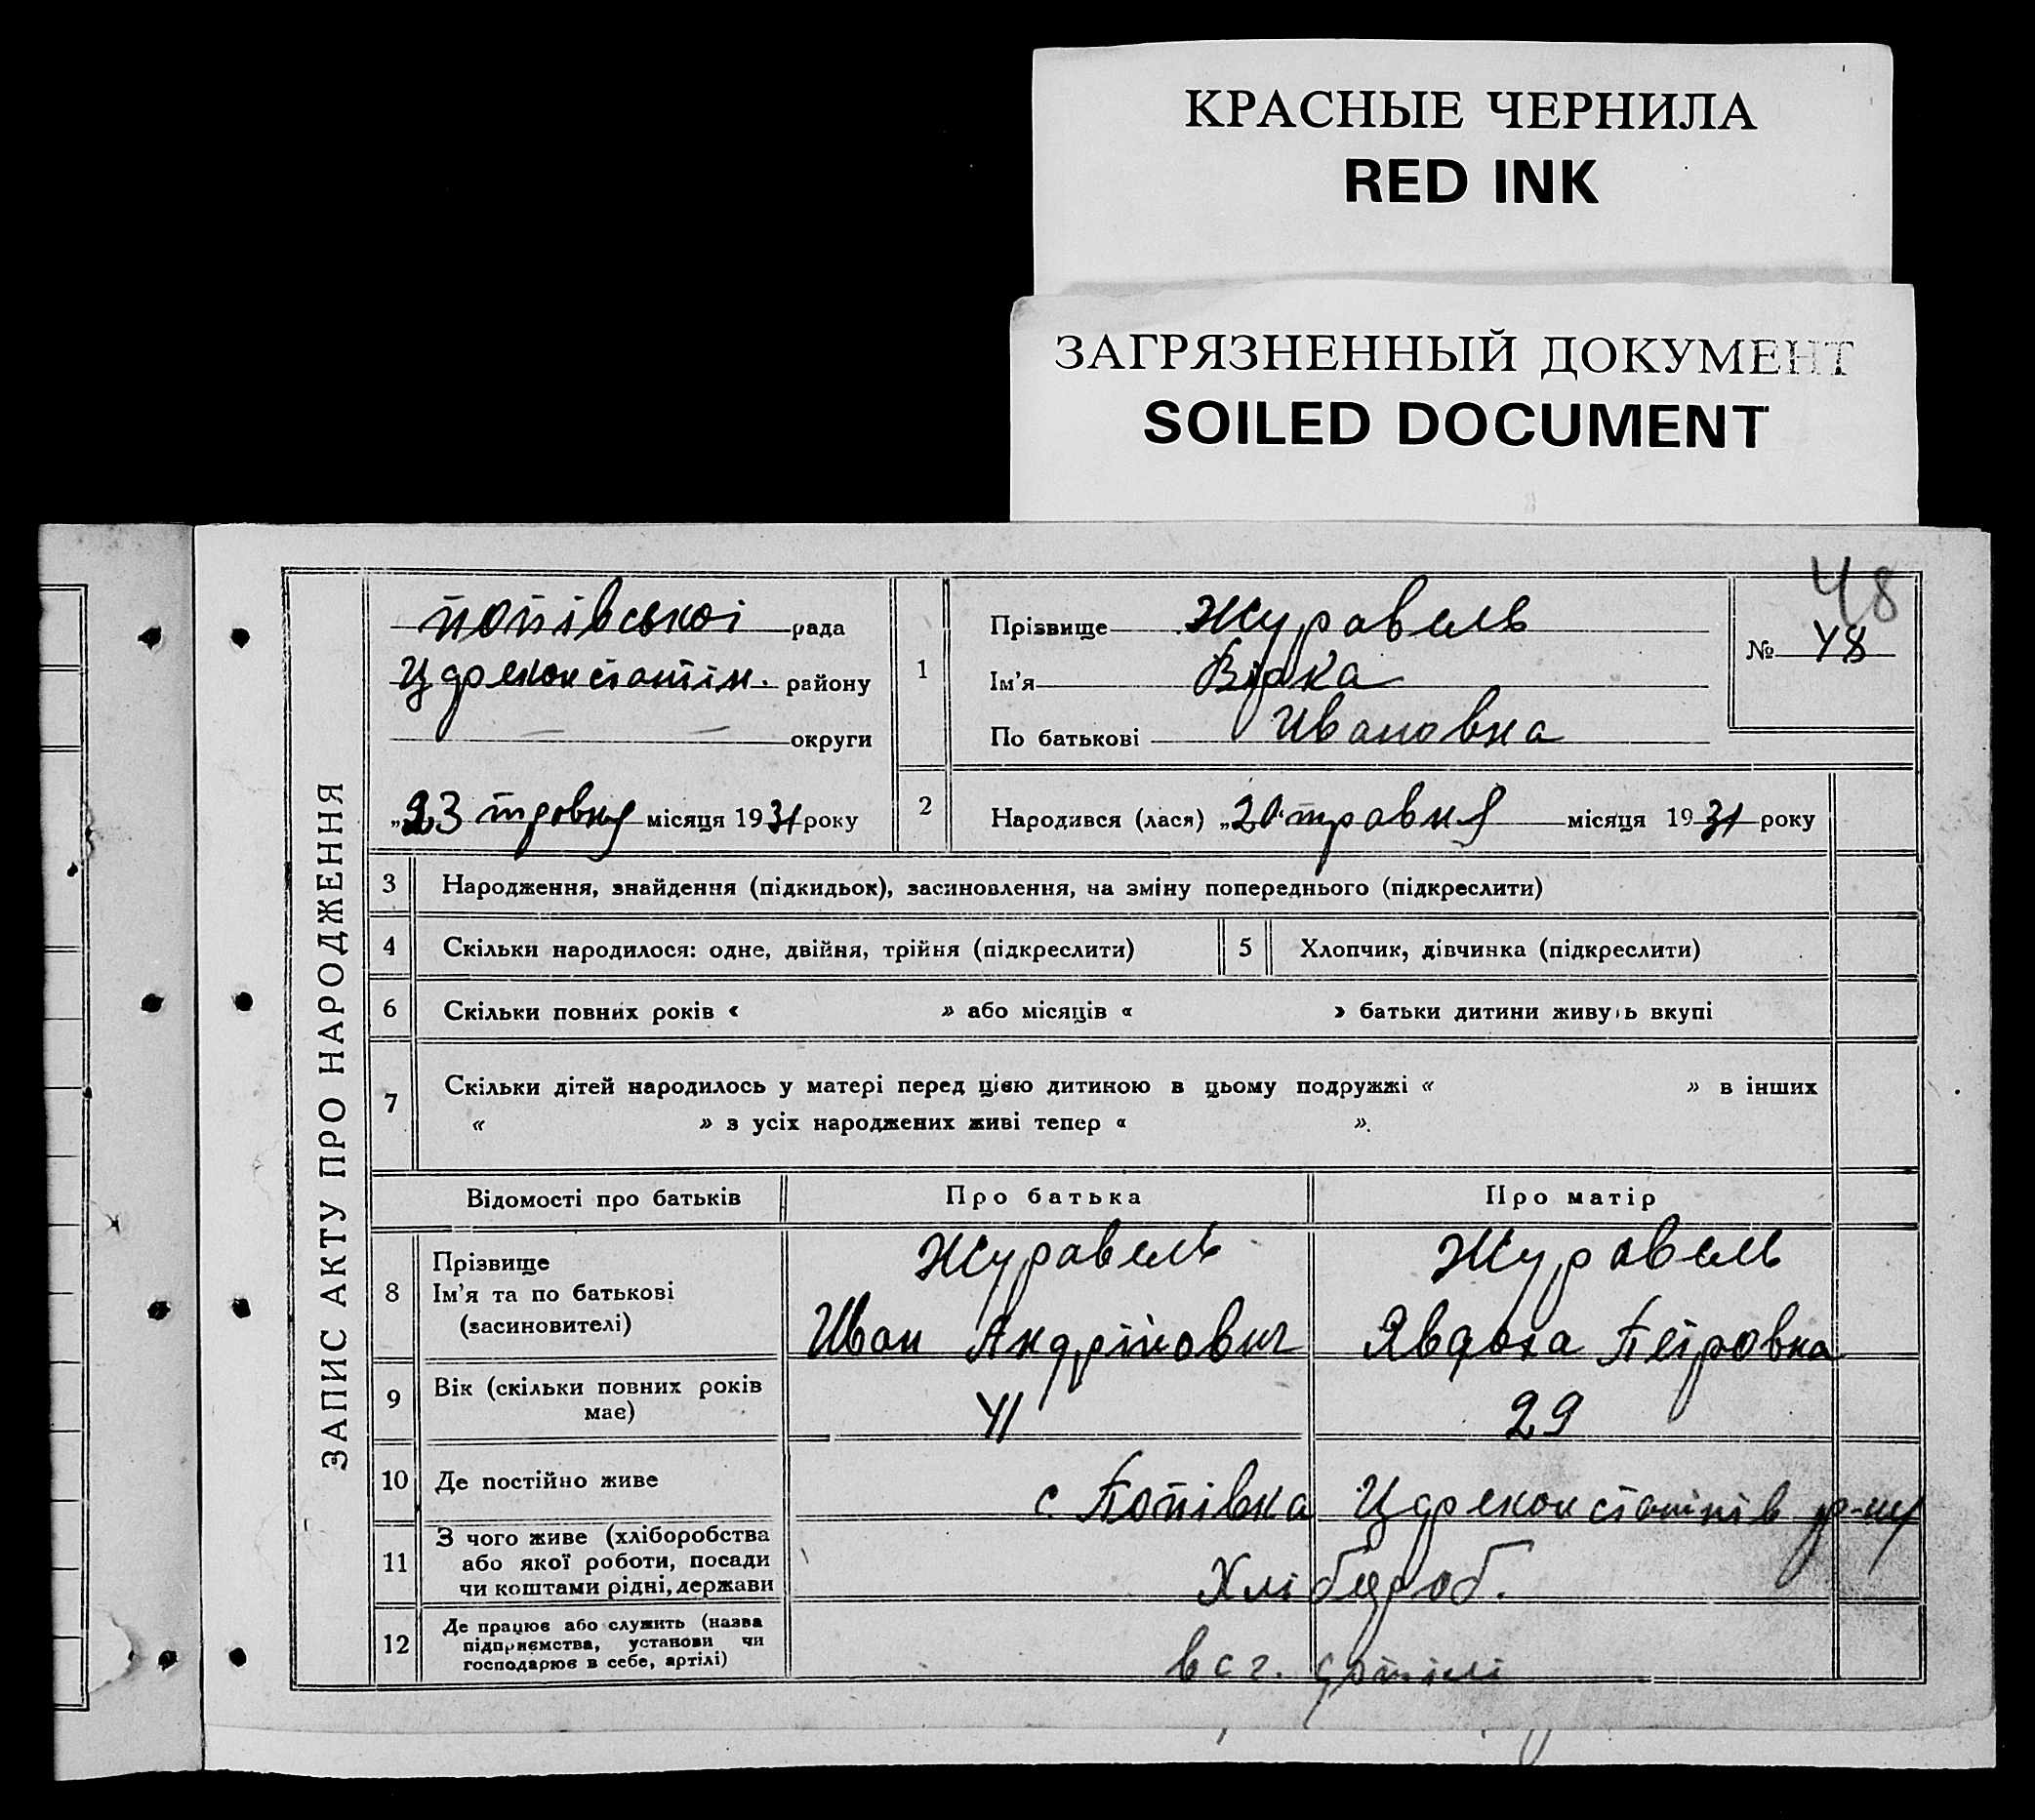 КРАСНЫЕ ЧЕРНИЛА
RED INK
ЗАГРЯЗНЕННЫЙ ДОКУМЕНТ
SOILED DOCUMENT
48
ЗАПИС АКТУ ПРО НАРОДЖЕННЯ
попівської рада
району
округи
„23 травня місяця 1931 року
1 Прізвище Журавель
Ім'я
По батькові Ивановна
№ 48
2 Народився (лася) „20 травня місяця 1931 року
3 Народження, знайдення (підкидьок), засиновлення, на зміну попереднього (підкреслити)
4 Скільки народилося: одне, двійня, трійня (підкреслити)
5 Хлопчик, дівчинка (підкреслити)
6 Скільки повних років « » або місяців « » батьки дитини живуть вкупі
7 Скільки дітей народилось у матері перед цією дитиною в цьому подружжі « » в інших
« » з усіх народжених живі тепер « ».
Відомості про батьків Про батька Про матір
8 Прізвище
Ім'я та по батькові
(засиновителі)
Журавель
Иван Андрійович
Журавель
Явдоха Петровна
9 Вік (скільки повних років
має)
41 29
10 Де постійно живе
с Попівка р-ну
11 З чого живе (хліборобства
або якої роботи, посади
чи коштами рідні, держави
Хлібороб.
12 Де працює або служить (назва
підприємства, установи чи
господарює в себе, артілі)
в с г. артілі